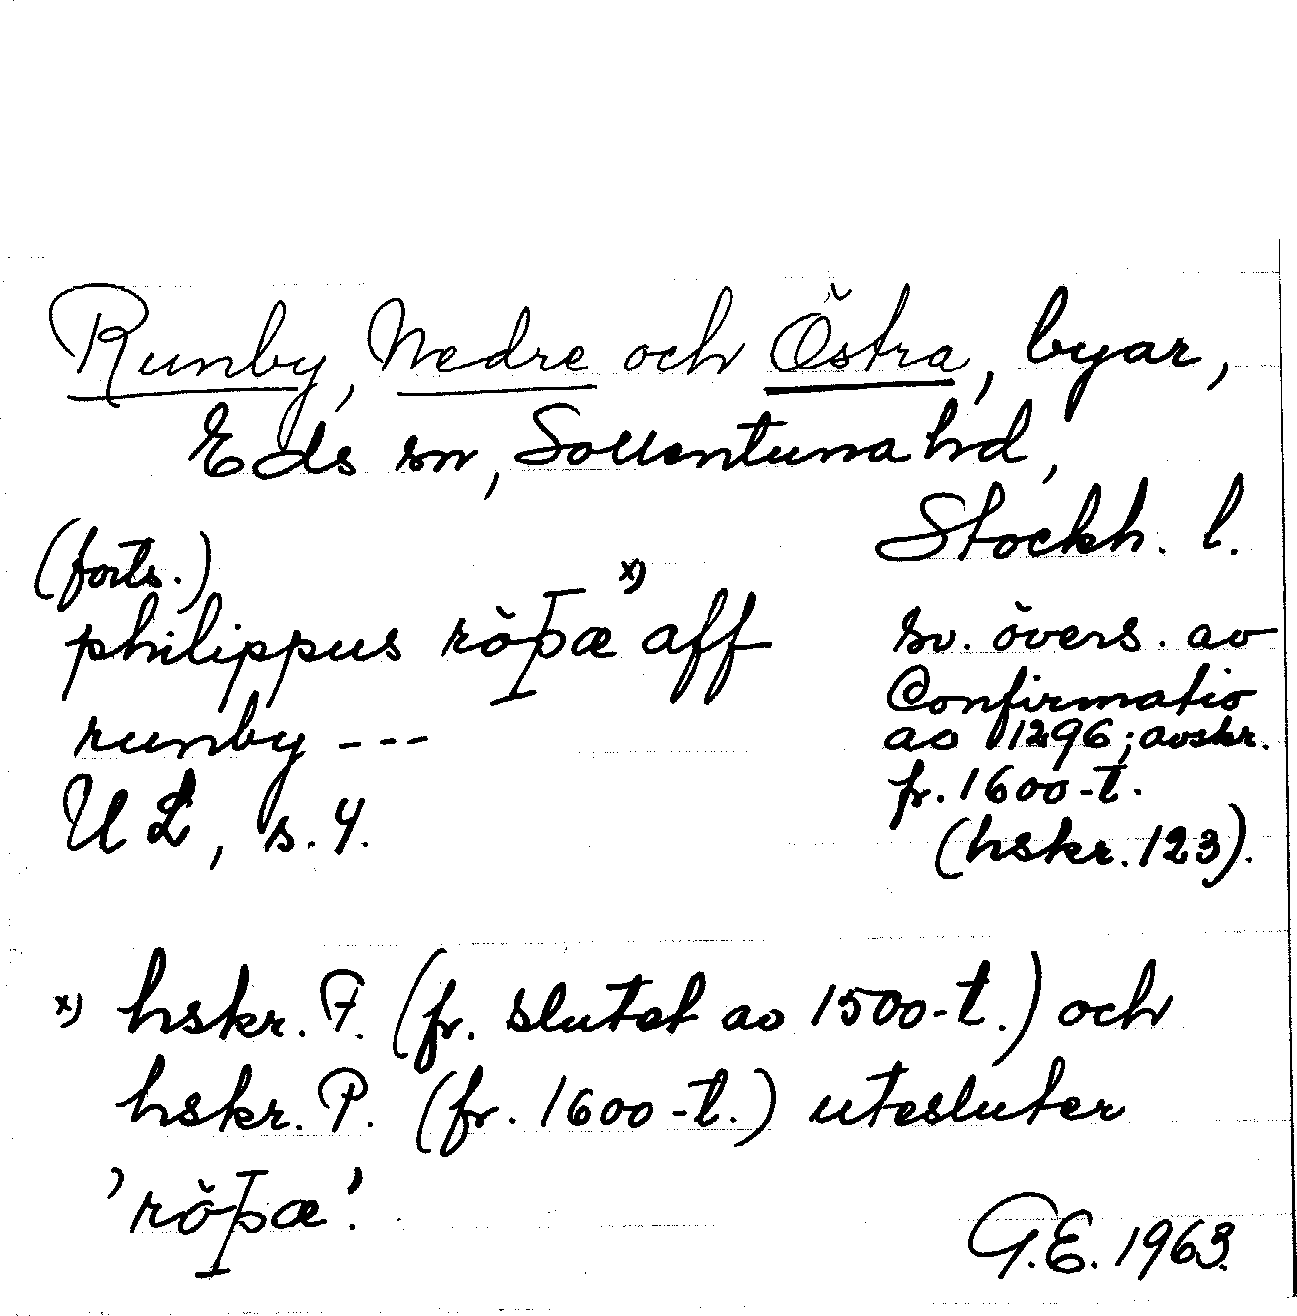 Runby, Nedre och Östra, byar,
Eds sn, Sollentuna hd,
Stockh. l.
(forts.)
philippus röþæ x) aff
runby ---
UL, s. 4.
sv. övers. av
Confirmatio
av 1296; avskr.
fr. 1600-t.
(hskr. 123).
x) hskr. F. (fr. slutet av 1500-t.) och
hskr. P. (fr. 1600-t.) utesluter
'röþæ'.
G.E. 1963.